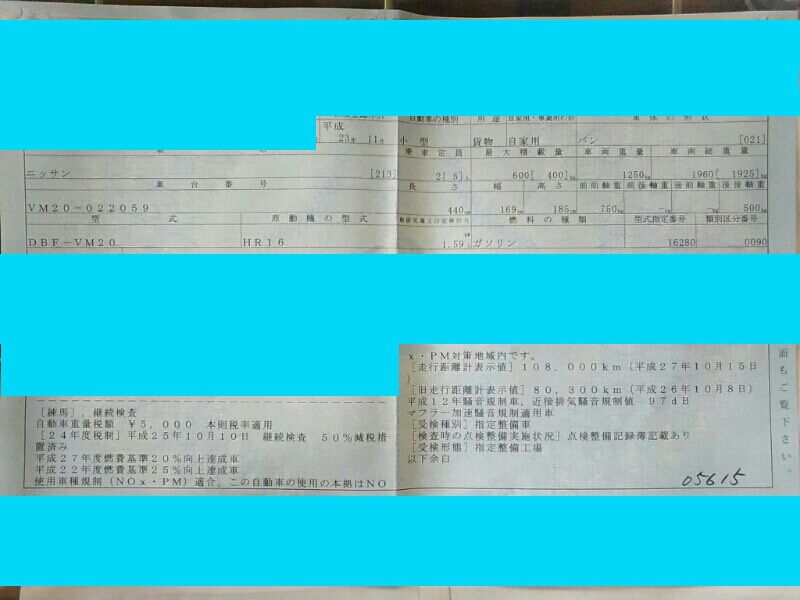 自動車の種別 用途 自家用・事業用の別 車体の形状
平成
23年 11月 小型 貨物 自家用 バン [021]
車名 乗車定員 最大積載量 車両重量 車両総重量
ニッサン [213] 2[ 5]人 600[ 400]kg 1250kg 1960[ 1925]kg
車台番号 長さ 幅 高さ 前前軸重 前後軸重 後前軸重 後後軸重
VM20-022059 440cm 169cm 185cm 750kg -kg -kg 500kg
型式 原動機の型式 総排気量又は定格出力 燃料の種類 型式指定番号 類別区分番号
DBF-VM20 HR16 1.59 ガソリン 16280 0090
[練馬], 継続検査
自動車重量税額 ¥5,000 本則税率適用
[24年度税制] 平成25年10月10日 継続検査 50%減税措
置済み
平成27年度燃費基準20%向上達成車
平成22年度燃費基準25%向上達成車
使用車種規制(NOx・PM)適合。この自動車の使用の本拠はNO
x・PM対策地域内です。
[走行距離計表示値] 108,000km (平成27年10月15日
)
[旧走行距離計表示値] 80,300km (平成26年10月8日)
平成12年騒音規制車, 近接排気騒音規制値 97dB
マフラー加速騒音規制適用車
[受検種別] 指定整備車
[検査時の点検整備実施状況] 点検整備記録簿記載あり
[受検形態] 指定整備工場
以下余白
05615
面もご覧下さい。